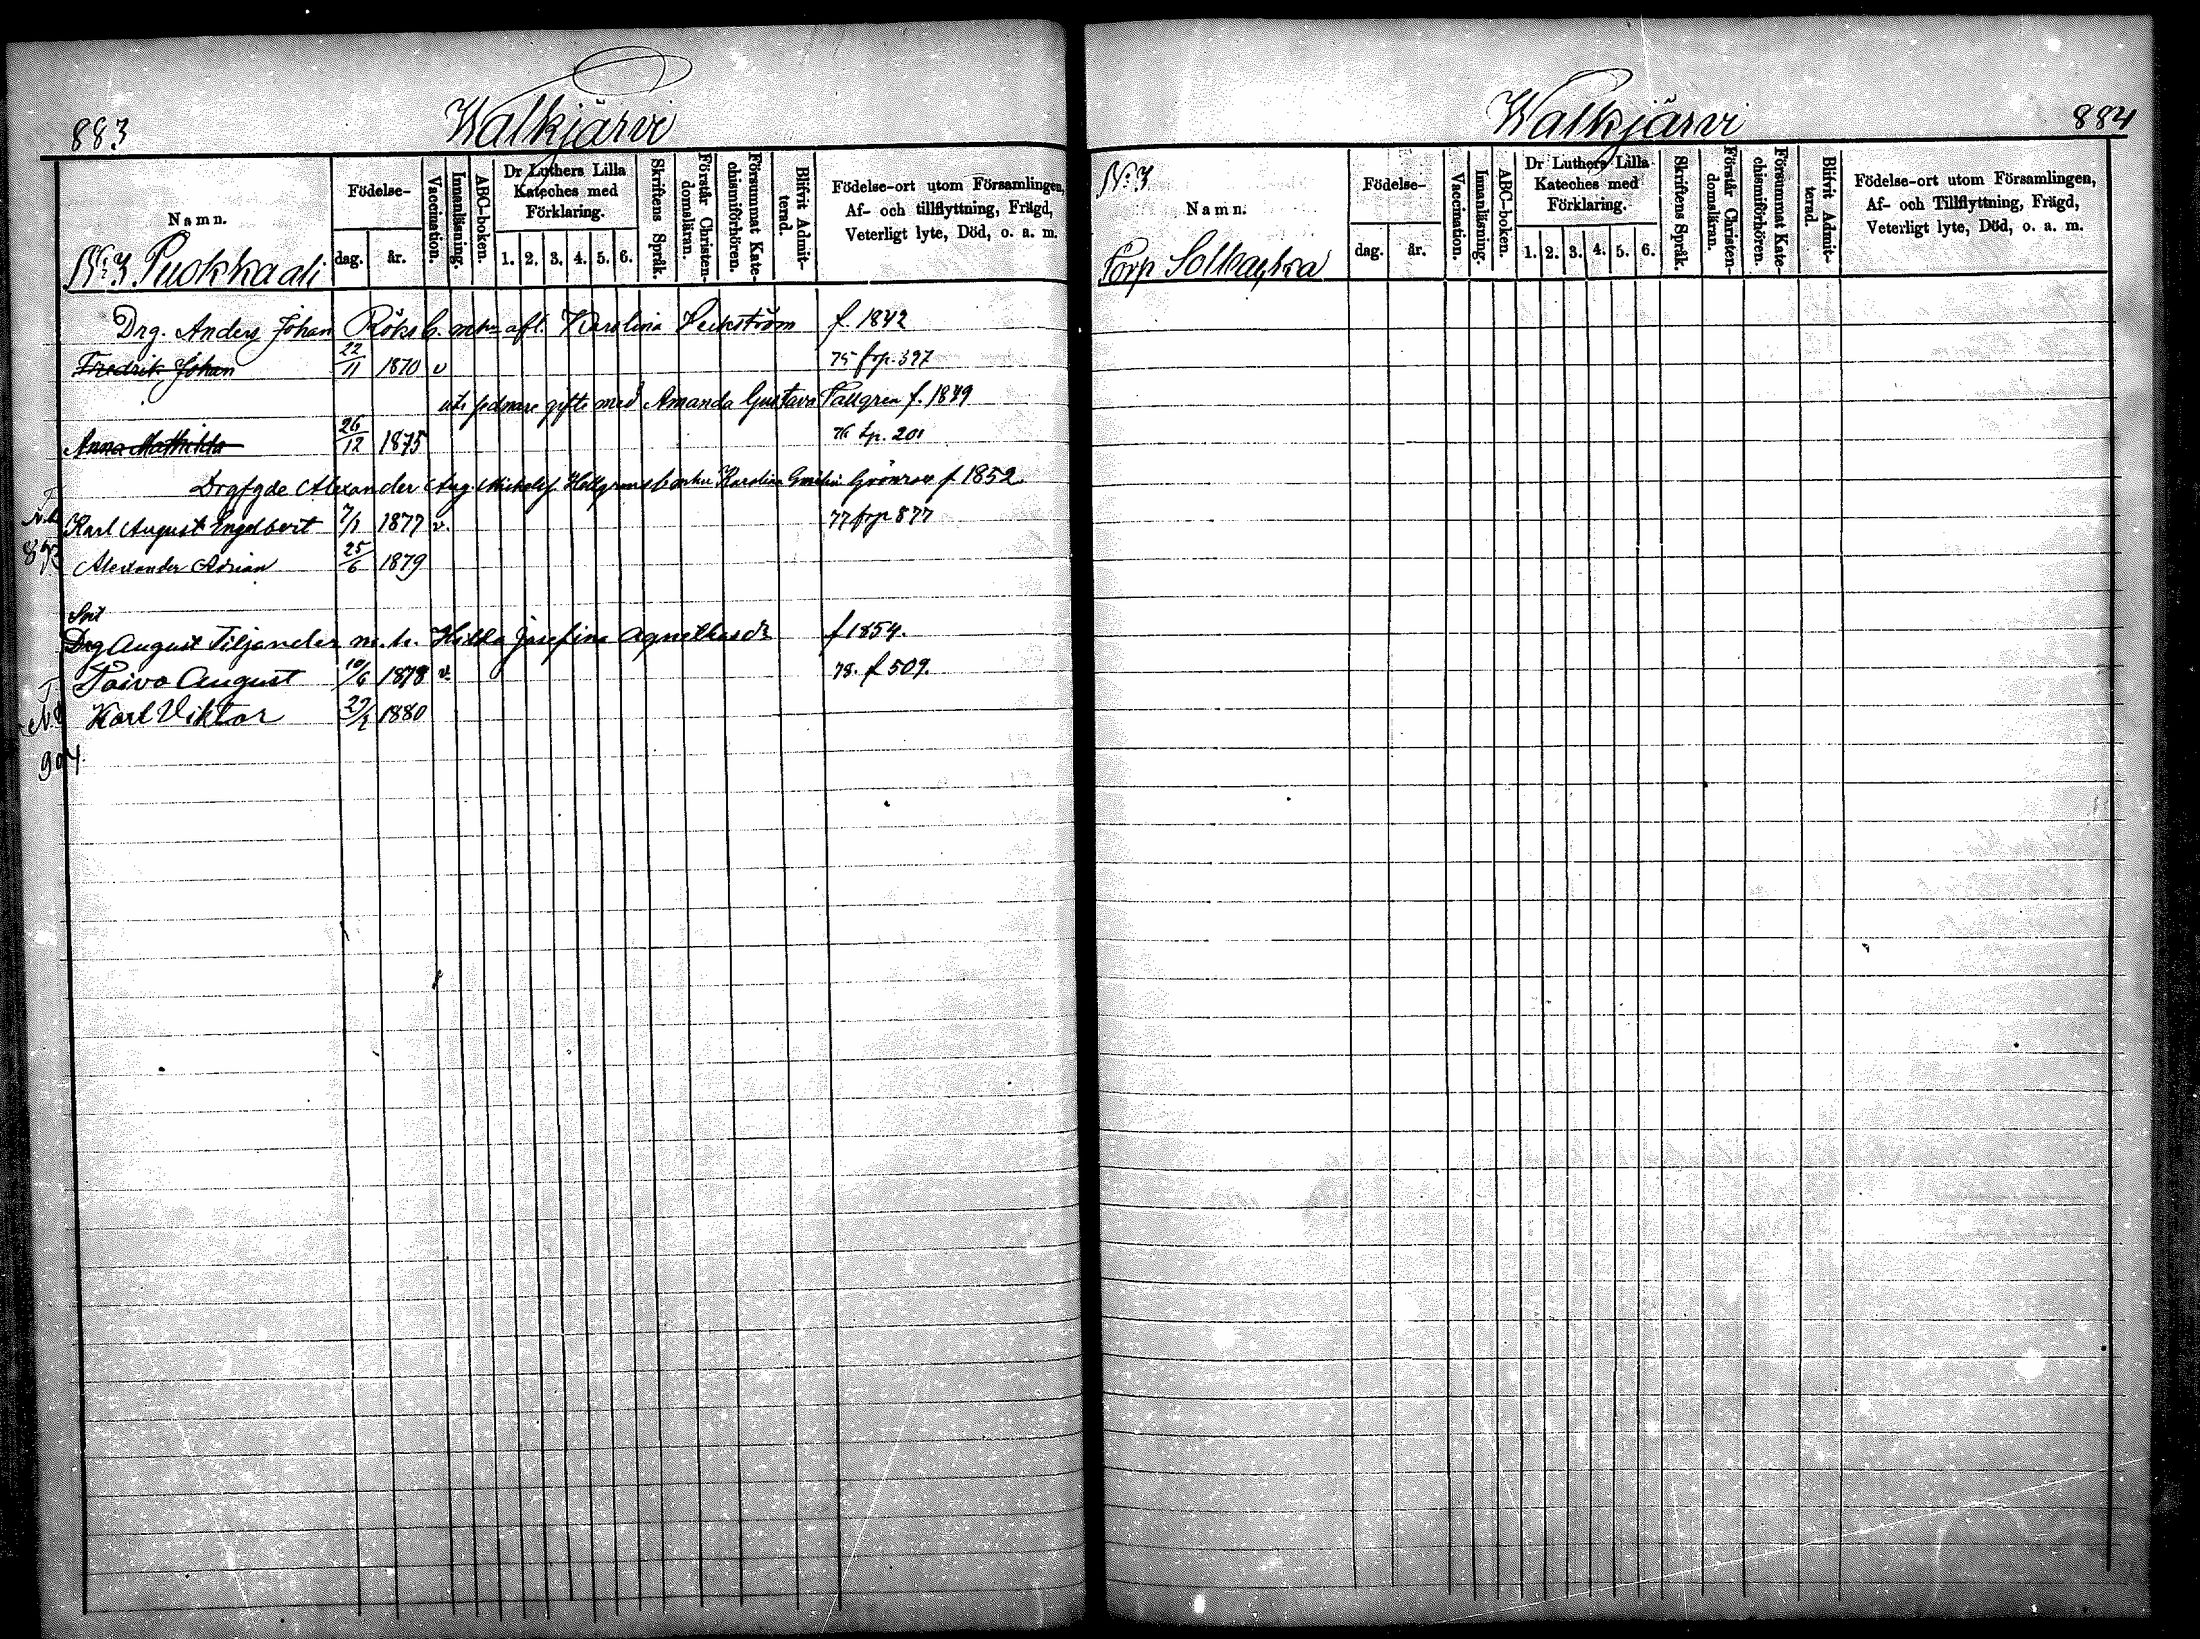 883
Walkjärvi
Namn.
Födelse-
dag.
år.
Vaccination.
Innanläsning.
ABC-boken.
Dr Luthers Lilla
Kateches med
Förklaring.
1. 2. 3. 4. 5. 6.
Skriftens Språk.
Förstår Christen-
domsläran.
Försummat Kate-
chismiförhören.
Blifvit Admit-
terad.
Födelse-ort utom Församlingen,
Af- och tillflyttning, Frägd,
Veterligt lyte, Död, o. a. m.
N:3
Drg. Anders Johan Karolina f. 1842
Fredrik Johan 22/11 1870 v 75 frp. 397
gifte med Amanda Gustava f. 1849
Anna Mathilda 26/12 1875 76 201
Alexander Aug. Karolina f. 1852
Karl August Engelbert 7/1 1877 v. 77 frp 877
Alexander Adrian 25/6 1879
Drg August Tiljander m. h. Hilda Josefina f 1854.
Toivo August 10/6 1878 v. 78. f 509.
Karl Viktor 29/2 1880
904.
Walkjärvi
884
N:3
Namn.
Torp
Födelse-
dag.
år.
Vaccination.
Innanläsning.
ABC-boken.
Dr Luthers Lilla
Kateches med
Förklaring.
1. 2. 3. 4. 5. 6.
Skriftens Språk.
Förstår Christen-
domsläran.
Försummat Kate-
chismiförhören.
Blifvit Admit-
terad.
Födelse-ort utom Församlingen,
Af- och Tillflyttning, Frägd,
Veterligt lyte, Död, o. a. m.